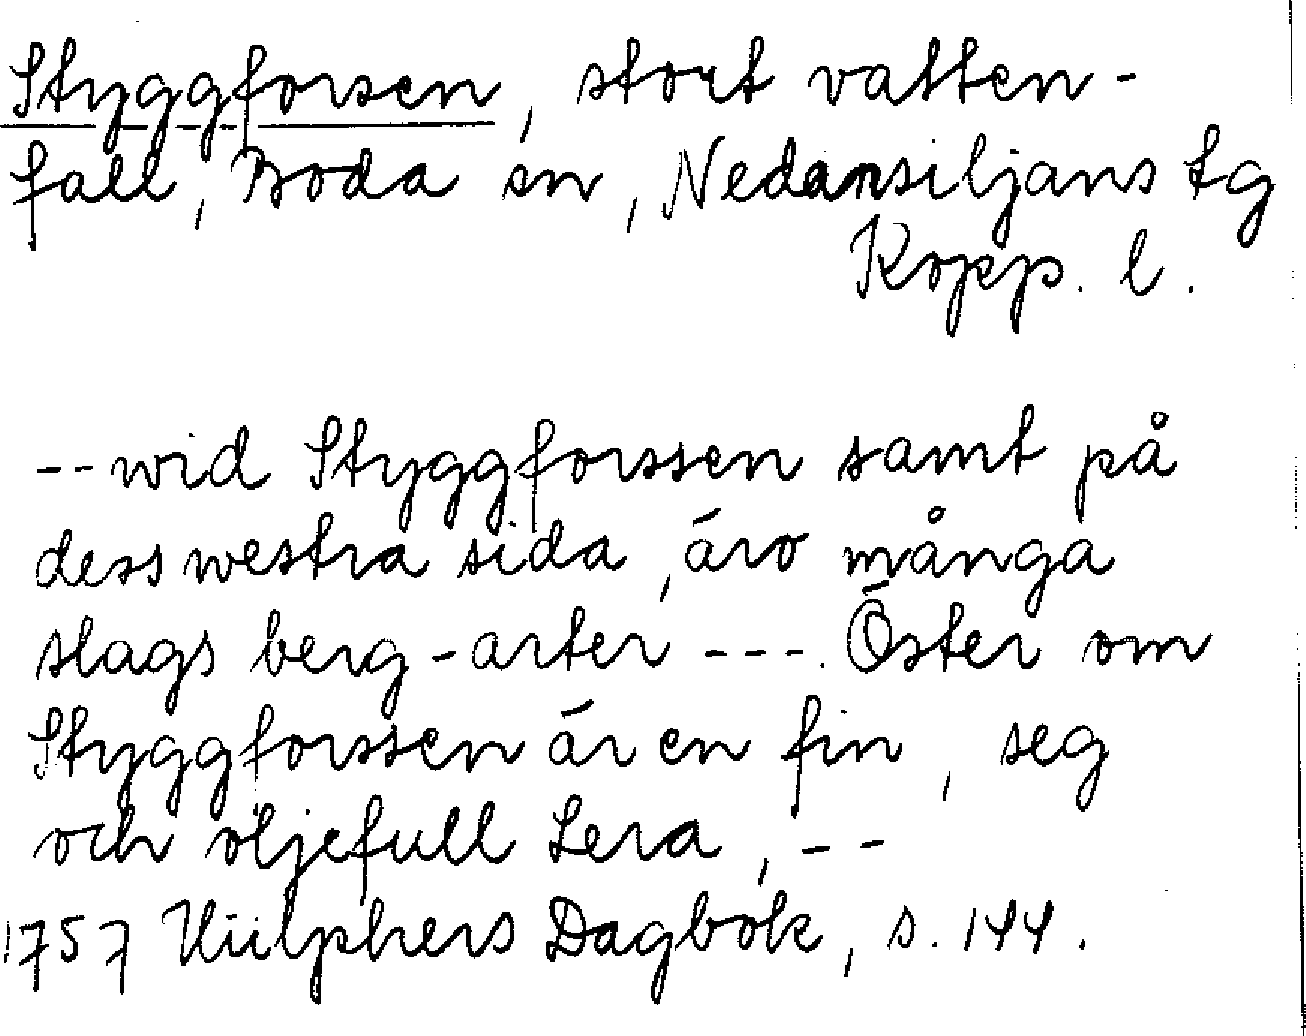 Styggforsen, stort vatten-
fall, Boda sn, Nedansiljans tg
Kopp. l.
-- wid Styggforssen samt på
dess westra sida, äro många
slags berg-arter ---. Öster om
Styggforssen är en fin, seg
och oljefull Lera, --
1757 Hülphers Dagbok, s. 144.